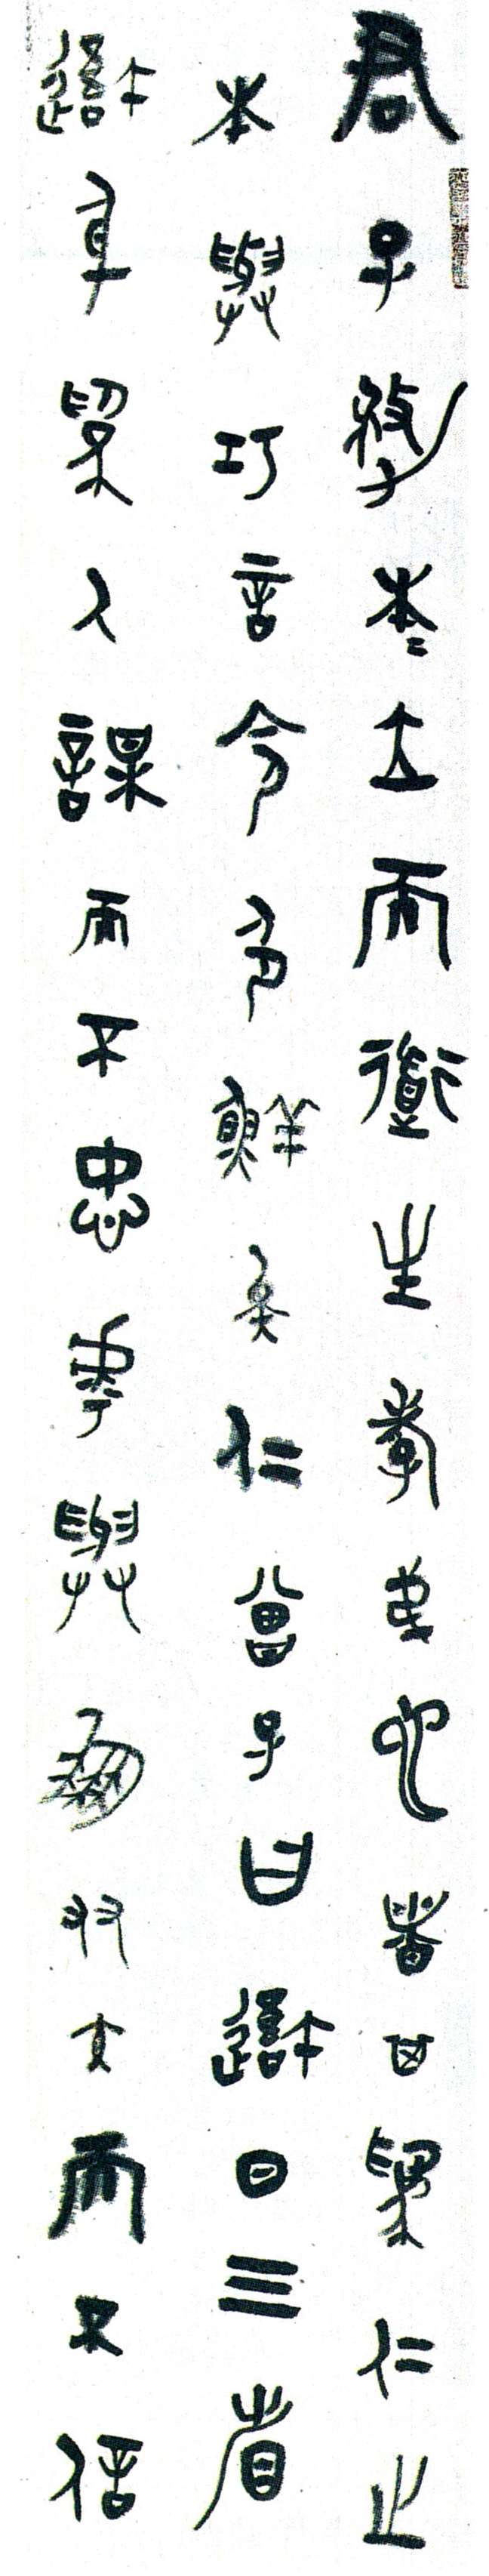 君子務本=立而道生孝弟也者其為仁之
本與巧言令色鮮矣仁曾子曰吾日三省
吾身為人謀而不忠乎與朋友交而不信